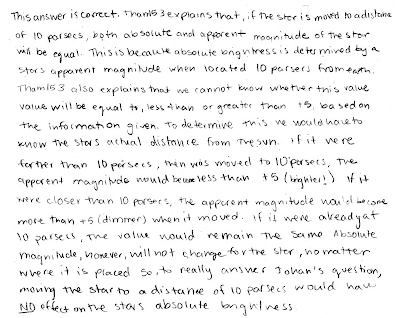 This answer is correct. Tham153 explains that, if the star is moved to a distance
of 10 parsecs, both absolute and apparent magnitude of the star
will be equal. This is because absolute brightness is determined by a
stars apparent magnitude when located 10 parsecs from earth.
Tham153 also explains that we cannot know whether this value
value will be equal to, less than or greater than +5, based on
the information given. To determine this we would have to
know the stars actual distance from the sun. If it were
farther than 10 parsecs, then was moved to 10 parsecs, the
apparent magnitude would become less than +5 (brighter!) If it
were closer than 10 parsecs, the apparent magnitude would become
more than +5 (dimmer) when it moved. If it were already at
10 parsecs, the value would remain the same. Absolute
magnitude, however, will not change for the star, no matter
where it is placed so, to really answer Johan's question,
moving the star to a distance of 10 parsecs would have
NO effect on the stars absolute brightness.